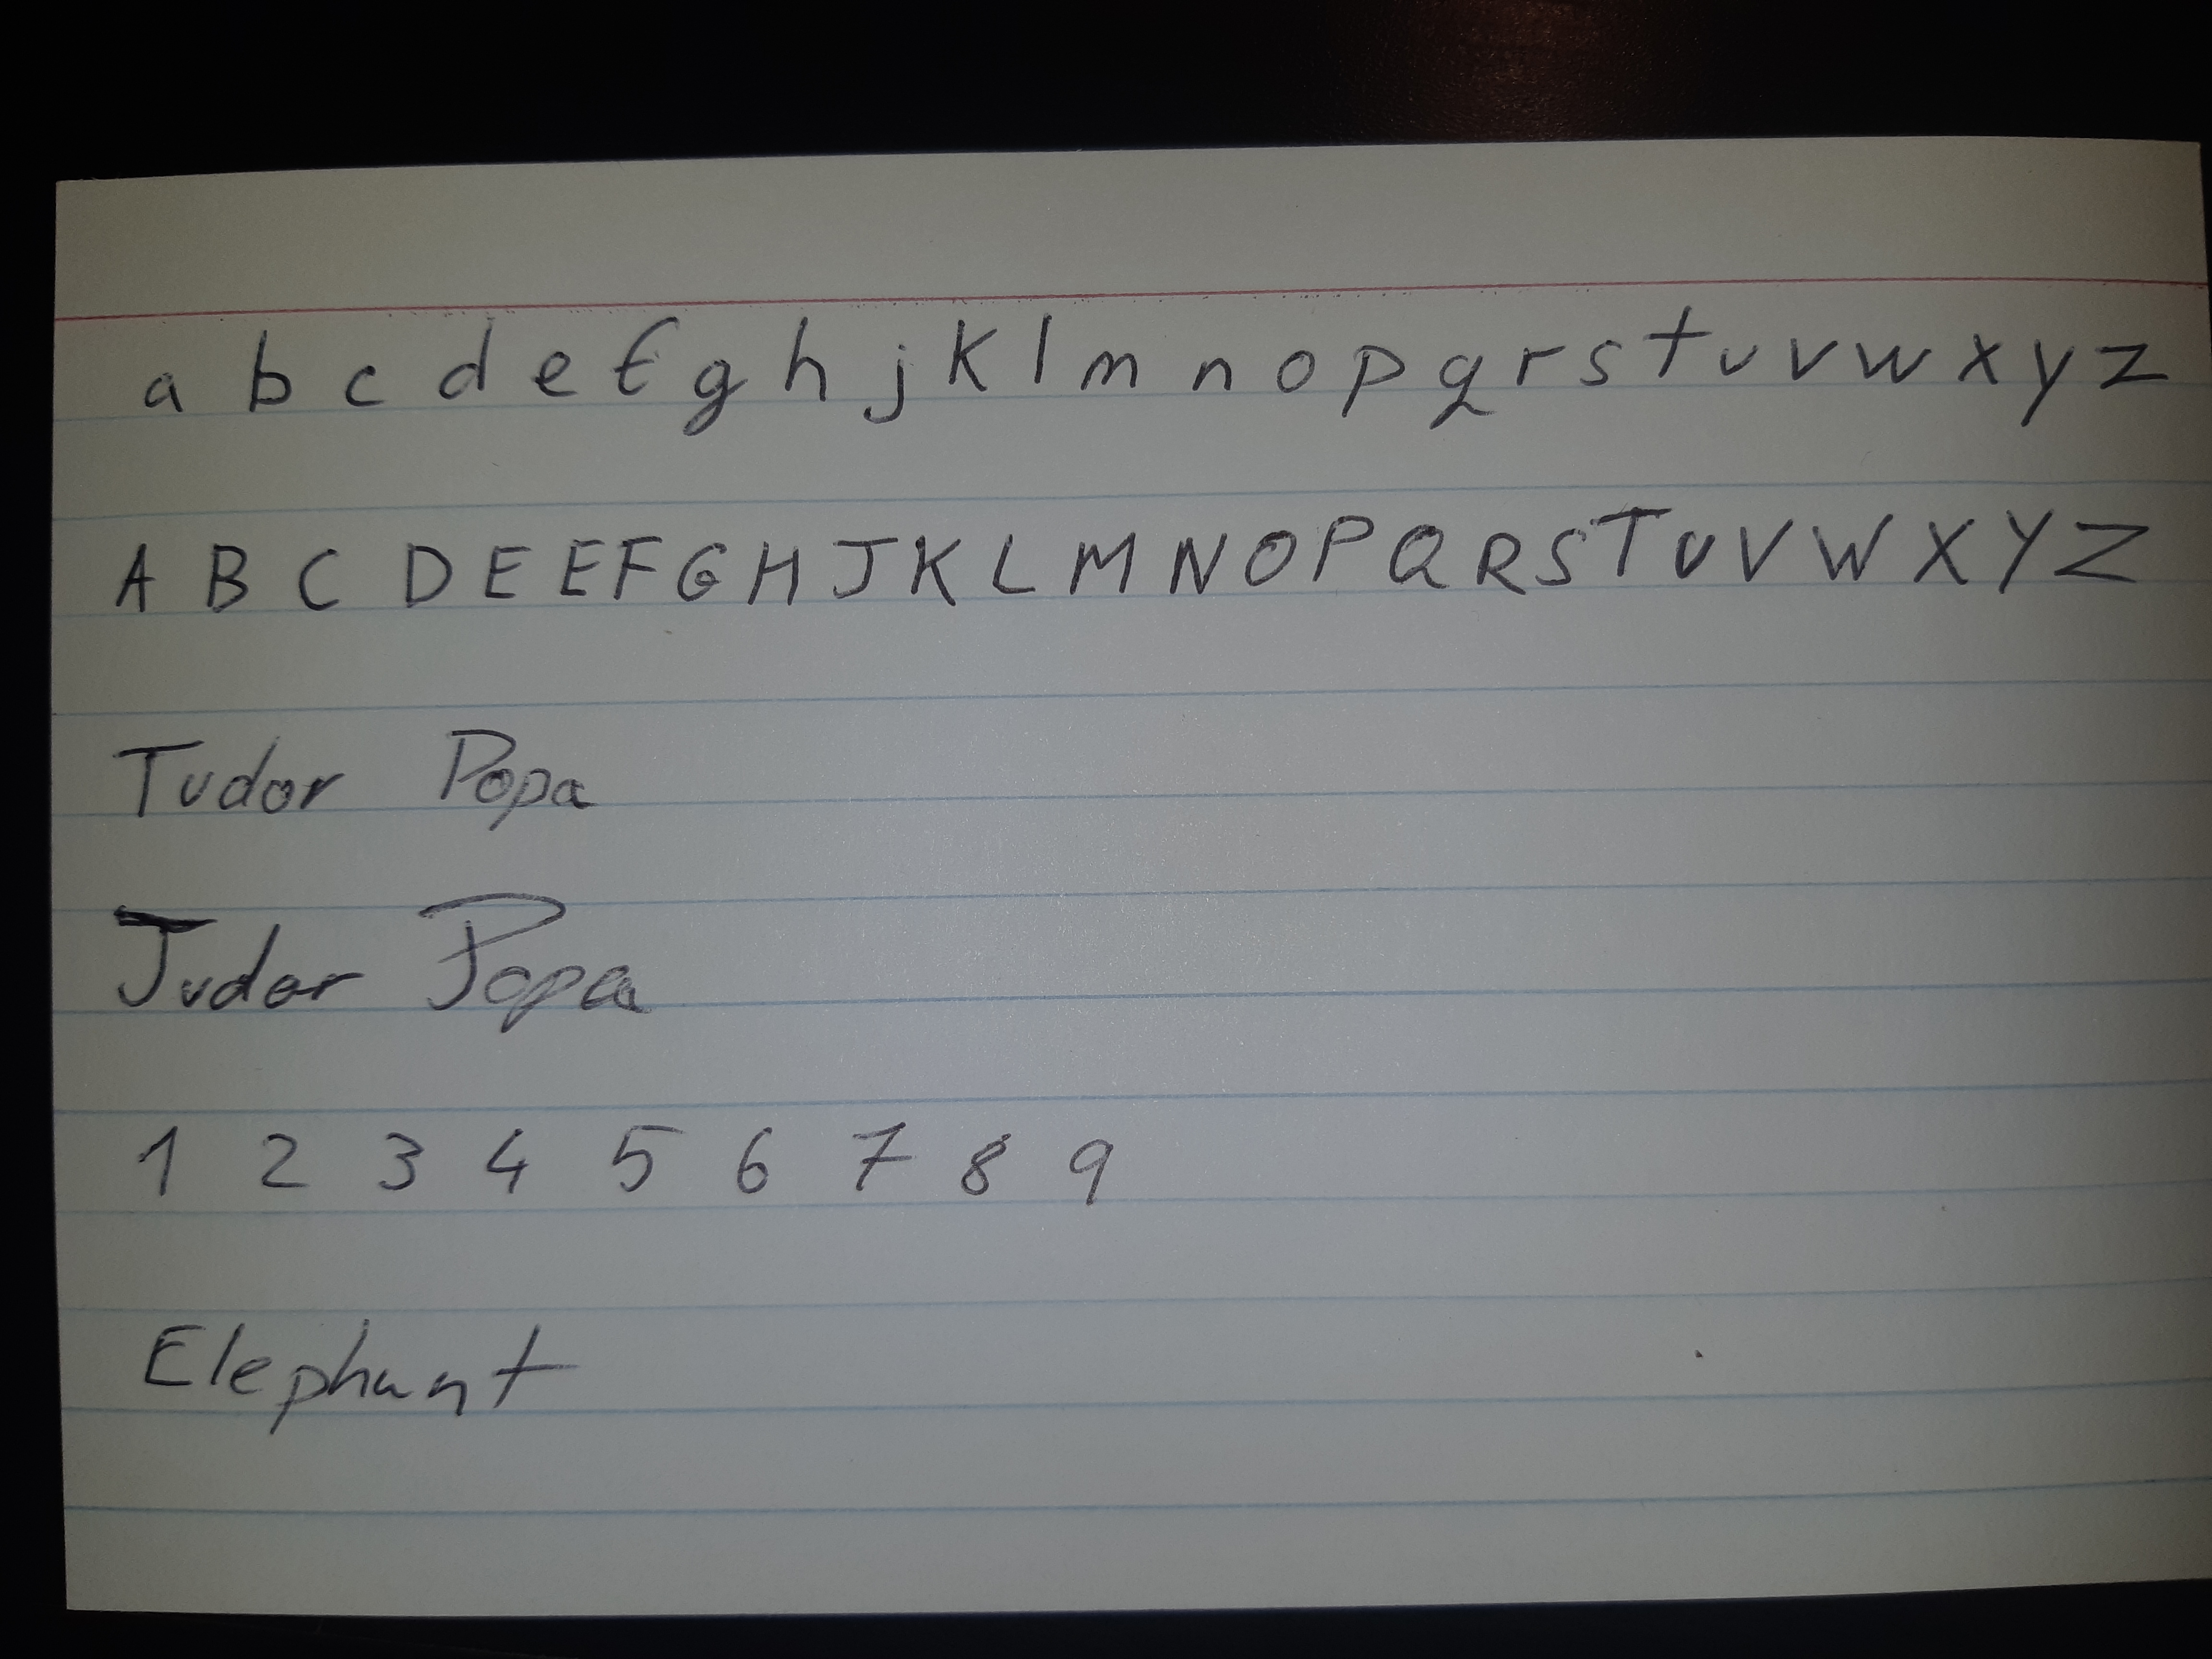 a b c d e f g h j k l m n o p q r s t u v w x y z
A B C D E E F G H J K L M N O P Q R S T U V W X Y Z
Tudor Popa
Tudor Popa
1 2 3 4 5 6 7 8 9
Elephant